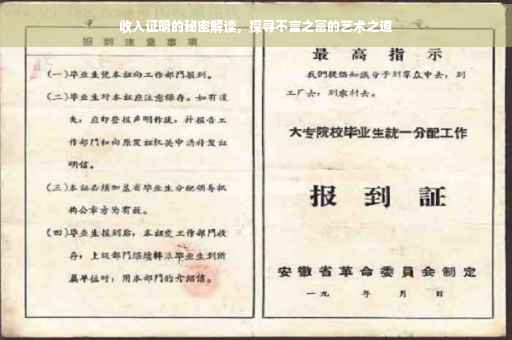 收入证明的秘密解读，探寻不言之富的艺术之道
报到注意事项
（一）毕业生凭本证向工作部门报到。
（二）毕业生对本证应注意保存。如有遗
失，应即登报声明作废，并报告工
作部门和向原发证机关申请补发证
明信。
（三）本证必须加盖省毕业生分配领导机
构公章方为有效。
（四）毕业生报到后，本证交工作部门收
存；上级部门继续转派毕业生到所
属单位时，用本部门的介绍信。
最高指示
我们提倡知识分子到群众中去，到
工厂去，到农村去。
大专院校毕业生统一分配工作
报到证
安徽省革命委员会制定
一九 年 月 日